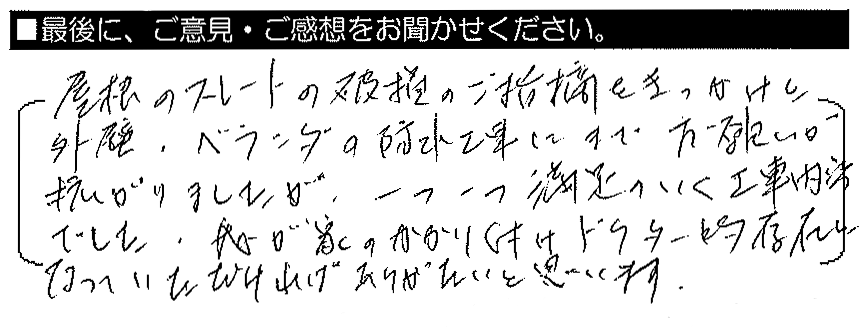 ■最後に、ご意見・ご感想をお聞かせください。
屋根のスレートの破損のご指摘をきっかけに
外壁、ベランダの防水工事にまでお願いが
拡がりましたが、一つ一つ満足のいく工事内容
でした。我が家のかかりつけドクター的存在に
なっていただければありがたいと思います。